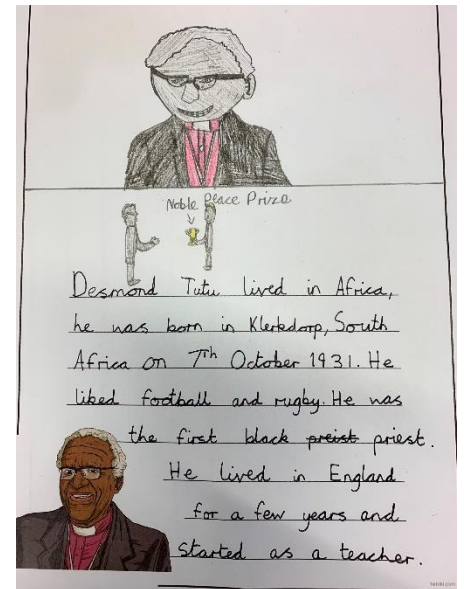 Noble Peace Prize
Desmond Tutu lived in Africa,
he was born in Klerksdorp, South
Africa on 7th October 1931. He
liked football and rugby. He was
the first black preist priest.
He lived in England
for a few years and
started as a teacher.
twinkl.com